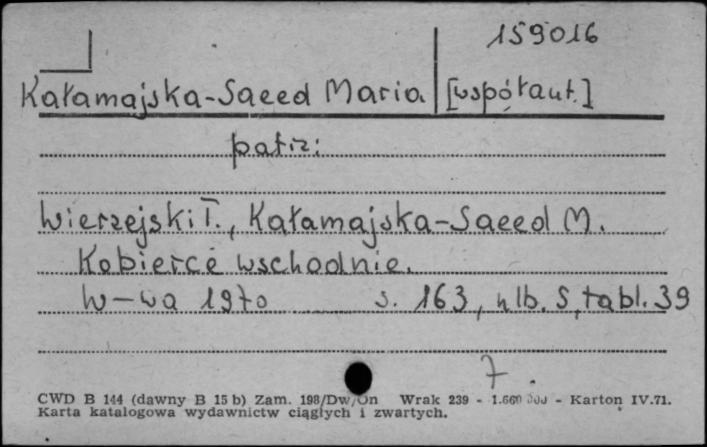 159016
Kałamajska-Saeed Maria [współaut.]
patrz:
Wierzejski T., Kałamajska-Saeed M.
Kobierce wschodnie.
W-wa 1970 s. 163, nlb. 5, tabl. 39
7
CWD B 144 (dawny B 15 b) Zam. 198/Dw/On Wrak 239 - 1.660 - Karton IV.71.
Karta katalogowa wydawnictw ciągłych i zwartych.